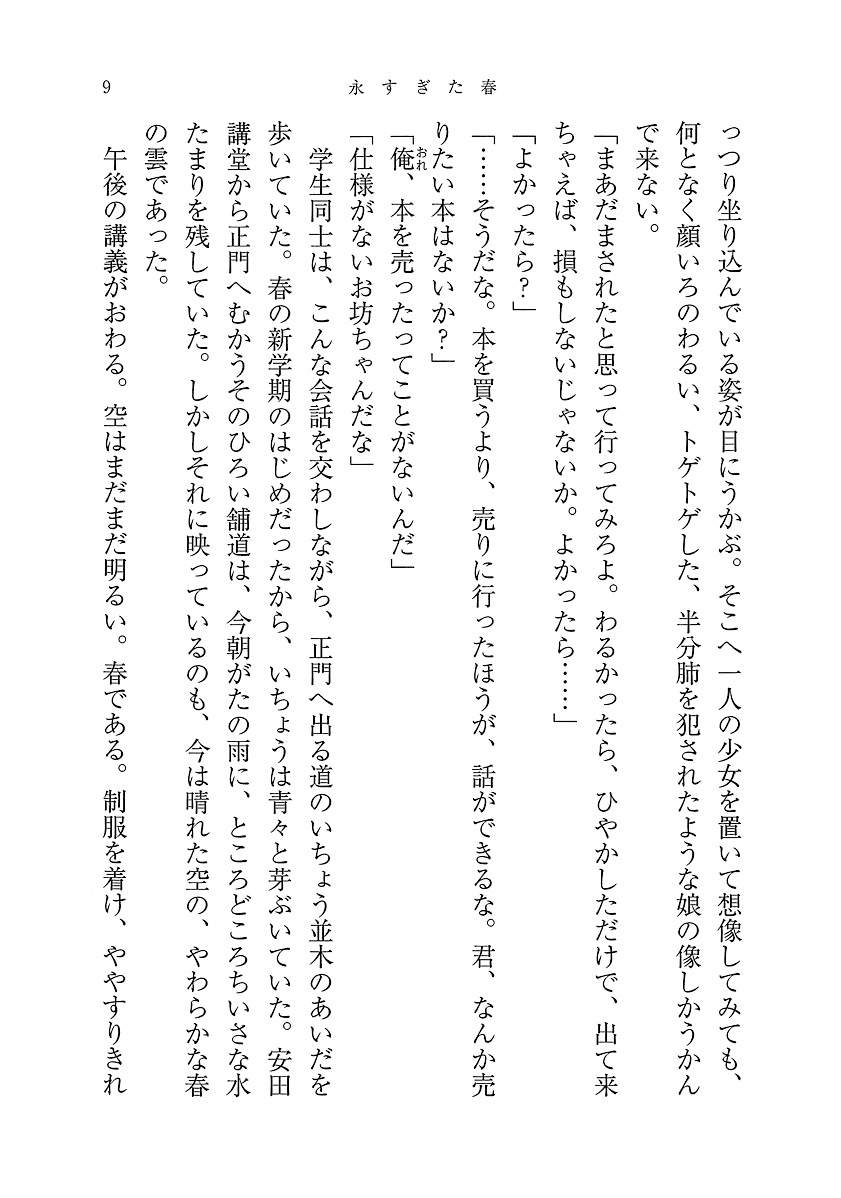 9
永すぎた春
っつり坐り込んでいる姿が目にうかぶ。そこへ一人の少女を置いて想像してみても、
何となく顔いろのわるい、トゲトゲした、半分肺を犯されたような娘の像しかうかん
で来ない。
「まあだまされたと思って行ってみろよ。わるかったら、ひやかしただけで、出て来
ちゃえば、損もしないじゃないか。よかったら……」
「よかったら?」
「……そうだな。本を買うより、売りに行ったほうが、話ができるな。君、なんか売
りたい本はないか?」
「俺、本を売ったってことがないんだ」
おれ
「仕様がないお坊ちゃんだな」
学生同士は、こんな会話を交わしながら、正門へ出る道のいちょう並木のあいだを
歩いていた。春の新学期のはじめだったから、いちょうは青々と芽ぶいていた。安田
講堂から正門へむかうそのひろい舗道は、今朝がたの雨に、ところどころちいさな水
たまりを残していた。しかしそれに映っているのも、今は晴れた空の、やわらかな春
の雲であった。
午後の講義がおわる。空はまだまだ明るい。春である。制服を着け、ややすりきれ